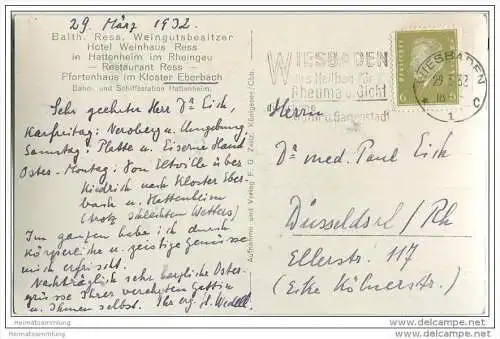 29. März 1932
Balth. Ress, Weingutsbesitzer
Hotel Weinhaus Ress
in Hattenheim im Rheingau
— Restaurant Ress —
Pfortenhaus im Kloster Eberbach
Bahn- und Schiffstation Hattenheim.
Sehr geehrter Herr Dr. Eick,
Karfreitag: Neroberg u. Umgebung.
Samstag: Platte u. Eiserne Hand
Oster-Montag: Von Eltville über
Kiedrich nach Kloster Eber-
bach u. Hattenheim
(trotz schlechten Wetters)
Im ganzen habe ich durch
körperliche u. geistige Genüsse
mich erfrischt.
Nachträglich sehr herzliche Oster-
grüsse Ihrer verehrten Gattin
u. Ihnen selbst. Ihr erg.
Aufnahme und Verlag F. G. Zeitz, Königsee/Thür.
WIESBADEN
das Heilbad für
Rheuma u. Gicht
Gartenstadt
WIESBADEN
29.3.32
1 c
6
6
Herrn
Dr. med. Paul Eick
Düsseldorf / Rh
Ellerstr. 117
(Ecke Kölnerstr.)
heimatsammlung
heimatsammlung
heimatsammlung
heimatsammlung